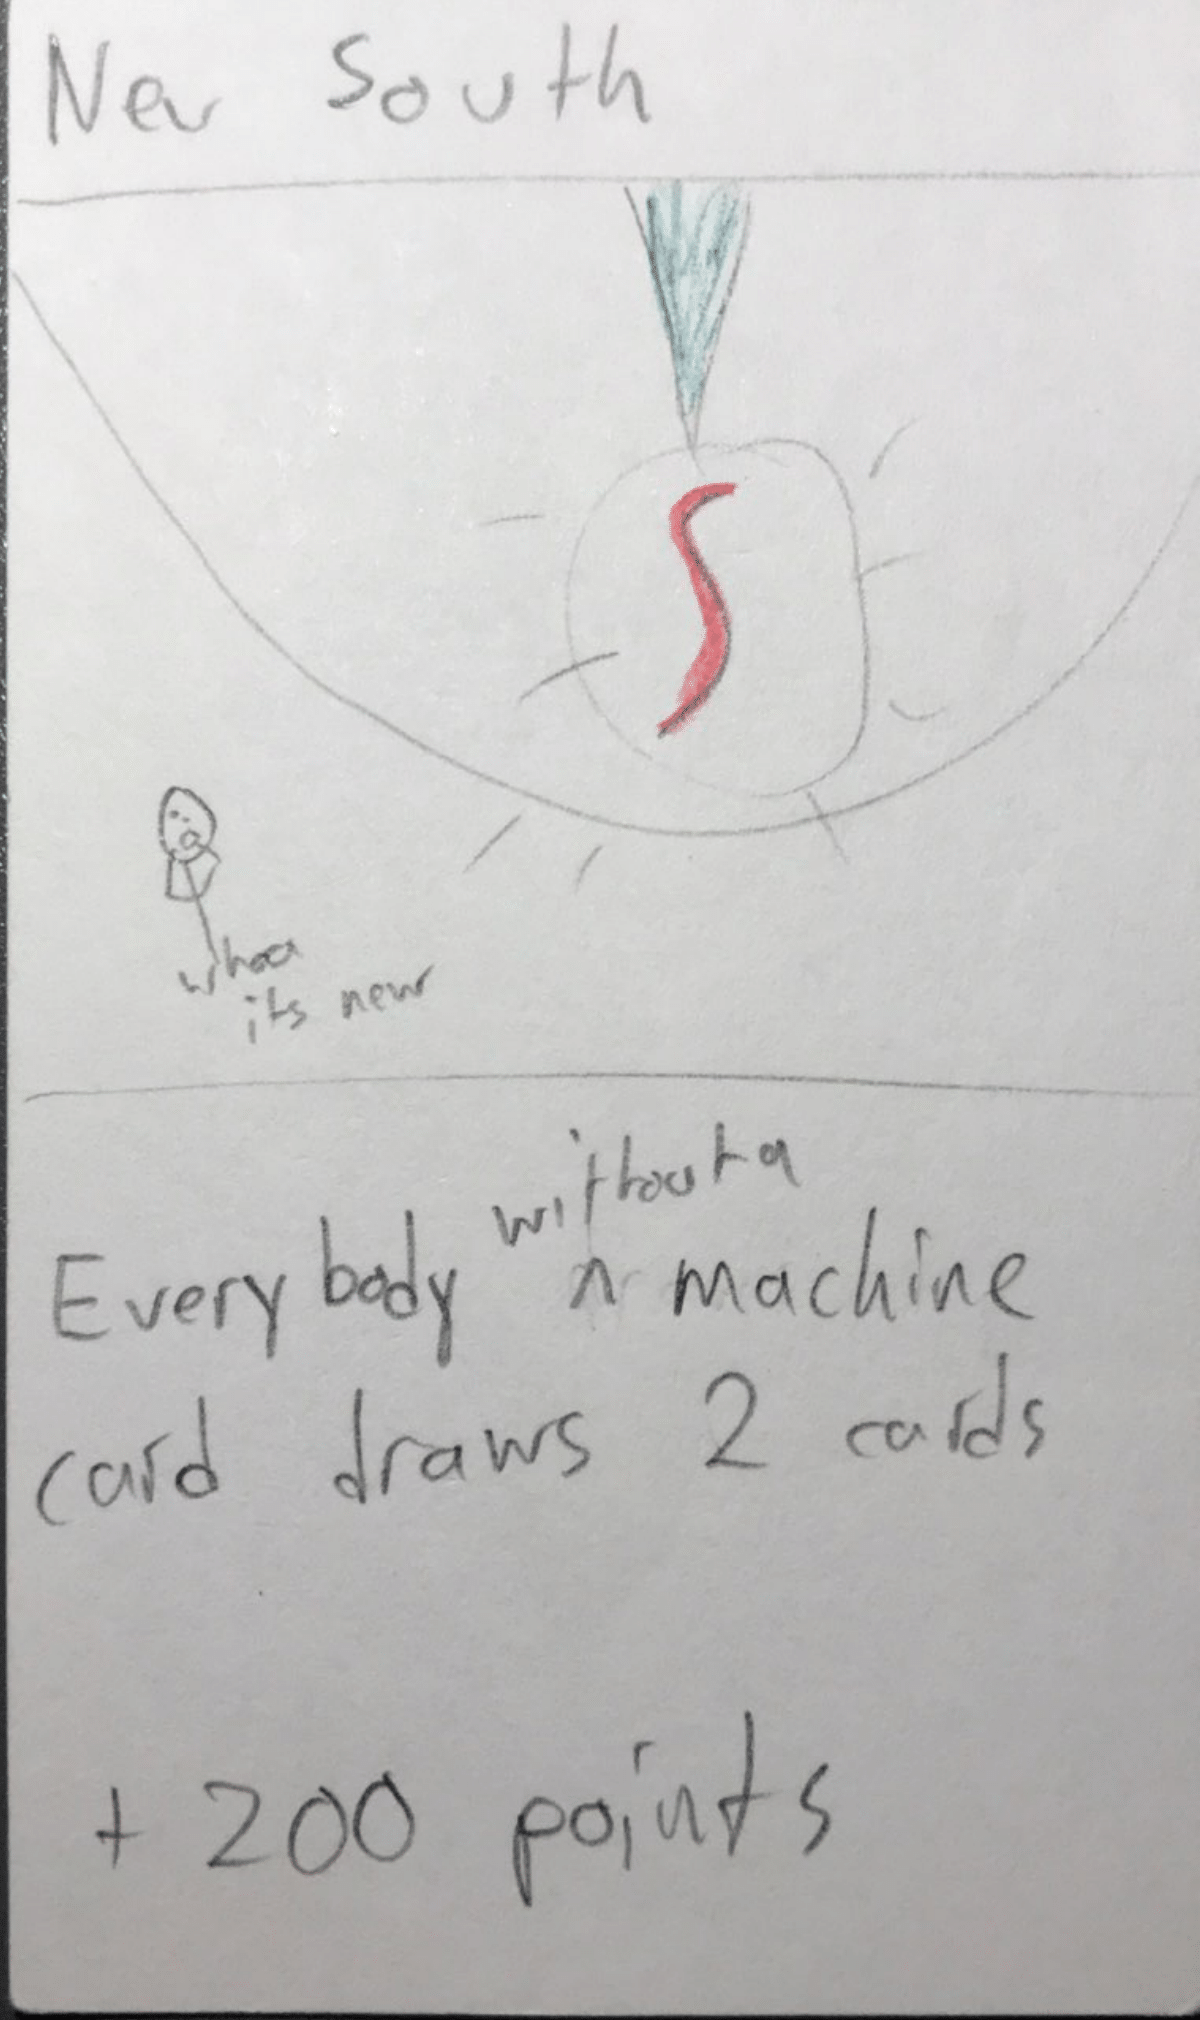 New South
S
whoa
its new
Everybody without a machine
card draws 2 cards
+ 200 points